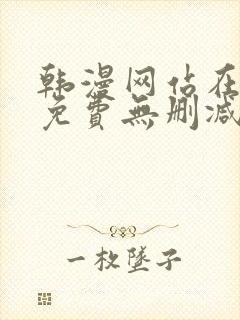 韩漫网站在
免費無删减
一枚墜子